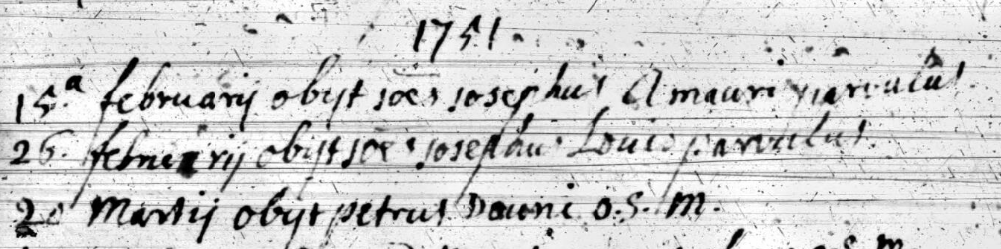 1751
15.a februarij obijt joes josephus Amauri parvulus
26. februarij obijt joes josephus Louis parvulus
20 Martij obijt petrus o.s.m.